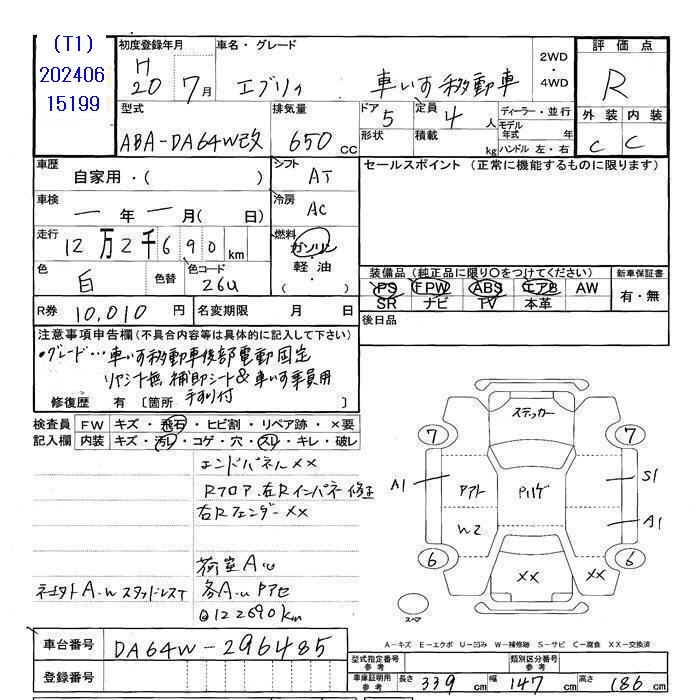 (T1)
202406
15199
初度登録年月
H
20 7月
車名・グレード
エブリィ 車いす移動車
2WD
・
4WD
評価点
R
型式
ABA-DA64W改
排気量
650 CC
ドア
5
定員
4 人
形状
積載 kg
ディーラー・並行
モデル
年式 年
ハンドル 左・右
外装 内装
C C
車歴
自家用・( )
シフト
AT
セールスポイント (正常に機能するものに限ります)
車検
一 年 一 月( 日)
冷房
AC
走行
12万2千690km
燃料
ガソリン
・
軽油・
( )
色
白
色替
色コード
26U
装備品(純正品に限り○をつけてください)
PS FPW ABS エアB AW
SR ナビ TV 本革
新車保証書
有・無
R券 10,010 円
名変期限 月 日
後日品
注意事項申告欄(不具合内容等は具体的に記入して下さい)
・グレード…車いす移動車後部電動固定
リヤシート無 補助シート&車いす乗員用
手すり付
修復歴 有 〔箇所 〕
検査員 FW キズ・飛石・ヒビ割・リペア跡・×要
記入欄 内装 キズ・汚レ・コゲ・穴・スレ・キレ・破レ
エンドパネル××
Rフロア.右Rインパネ修正
右Rフェンダー××
荷室A.u
各A.u アアセ
◎122690km
A.w スタッドレス
ステッカー
7 7
A1 アアト アハゲ S1
W2 A1
6 6
×× ××
スペア
A-キズ E-エクボ U-凹み W-補修跡 S-サビ C-腐食 XX-交換済
車台番号 DA64W-296485
登録番号
型式指定番号
参考
類別区分番号
参考
車庫証明用
参考
長さ 339 cm 幅 147 cm 高さ 186 cm